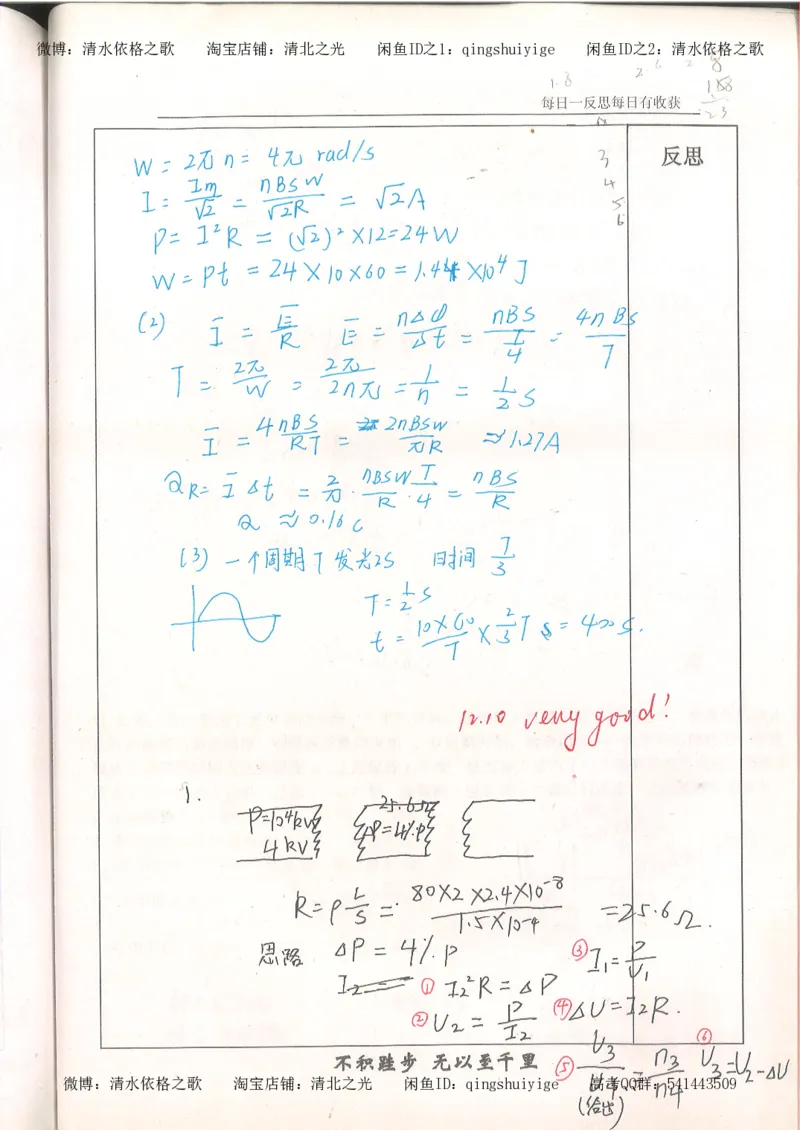 微博：清水依格之歌 淘宝店铺：清北之光 闲鱼ID之1：qingshuiyige 闲鱼ID之2：清水依格之歌
每日一反思每日有收获
反思
3
4
5
6
W = 2πn = 4π rad/s
I = Im/√2 = nBSW/√2R = √2A
P = I²R = (√2)²×12=24W
W = Pt = 24×10×60 = 1.44×10⁴ J
(2) Ī = Ē/R Ē = nΔφ/Δt = nBS/(T/4) = 4nBS/T
T = 2π/W = 2π/2nπ = 1/n = 1/2 S
Ī = 4nBS/RT = 2nBSW/πR ≈ 1.27A
QR = Ī Δt = 2/π · nBSW/R · T/4 = nBS/R
Q ≈ 0.16 C
(3) 一个周期T 发光2S 时间 T/3
T = 1/2 S
t = 10×60/T × 2/3 T S = 400S.
12.10 very good!
1.
P=10⁴kW 25.6Ω
4kV ΔP=4%P
R = ρ L/S = 80×2×2.4×10⁻⁸/1.5×10⁻⁴ = 25.6Ω.
思路 ΔP = 4% P ③ I₁ = P/U₁
I₂= ① I₂²R = ΔP
② U₂ = P/I₂ ④ ΔU = I₂R.
不积跬步 无以至千里
⑤ U₃/U₄ = n₃/n₄ ⑥ U₃=U₂-ΔU
(给出)
微博：清水依格之歌 淘宝店铺：清北之光 闲鱼ID：qingshuiyige 高考QQ群：541443509